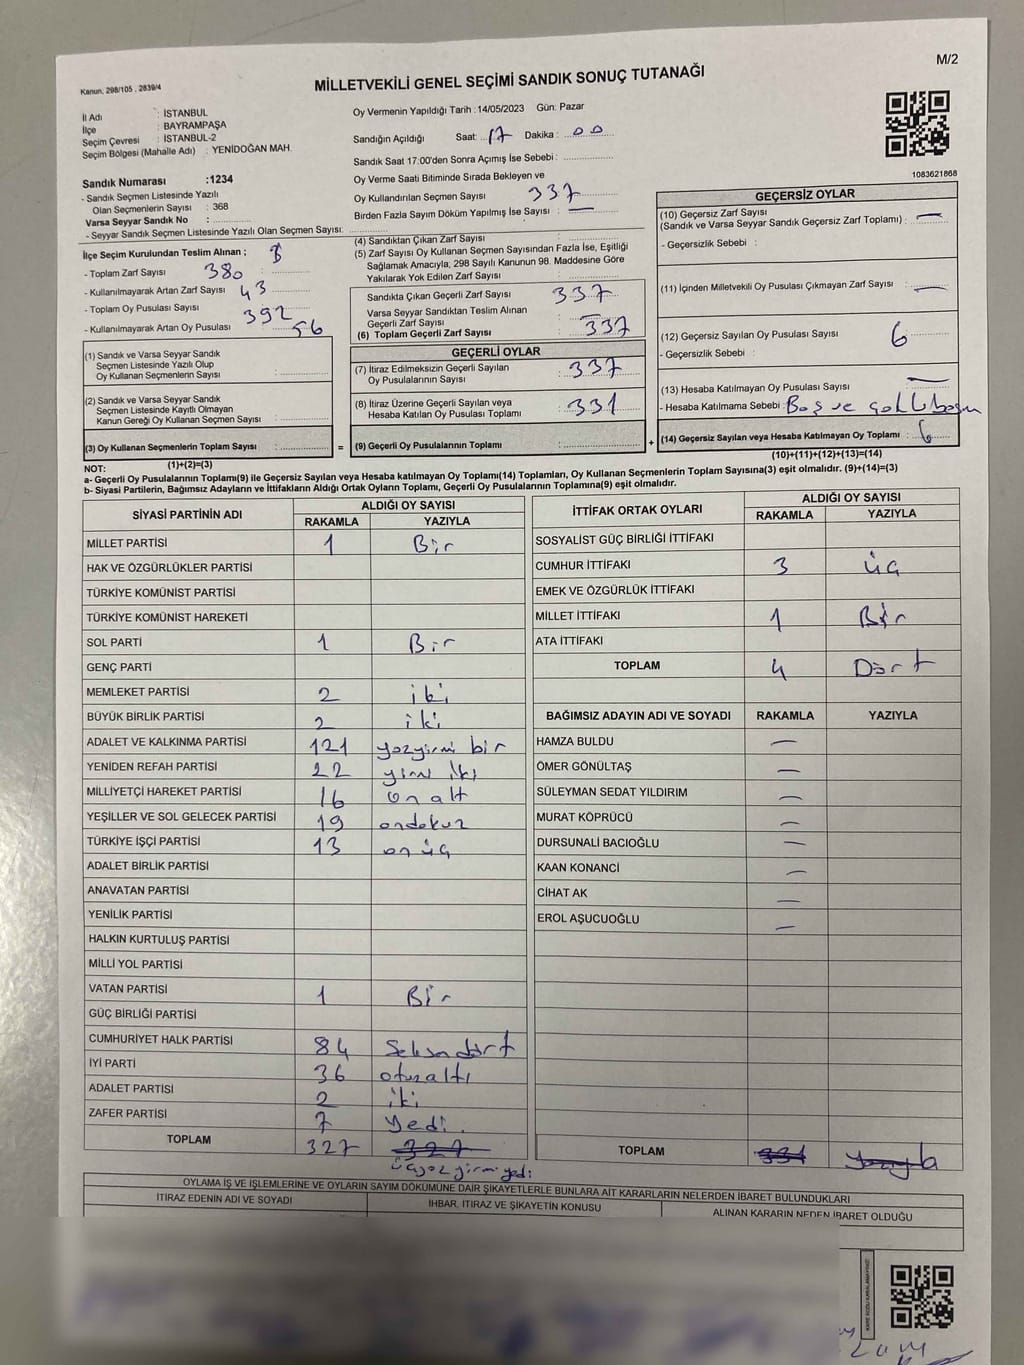 M/2
Kanun, 298/105 , 2839/4
MİLLETVEKİLİ GENEL SEÇİMİ SANDIK SONUÇ TUTANAĞI
İl Adı : İSTANBUL
İlçe : BAYRAMPAŞA
Seçim Çevresi : İSTANBUL-2
Seçim Bölgesi (Mahalle Adı) : YENİDOĞAN MAH.
Sandık Numarası :1234
- Sandık Seçmen Listesinde Yazılı
Olan Seçmenlerin Sayısı : 368
Varsa Seyyar Sandık No :
- Seyyar Sandık Seçmen Listesinde Yazılı Olan Seçmen Sayısı:
Oy Vermenin Yapıldığı Tarih :14/05/2023 Gün: Pazar
Sandığın Açıldığı Saat: 17 Dakika : 00
Sandık Saat 17:00'den Sonra Açımış İse Sebebi :
Oy Verme Saati Bitiminde Sırada Bekleyen ve
Oy Kullandırılan Seçmen Sayısı 337
Birden Fazla Sayım Döküm Yapılmış İse Sayısı : —
1083621868
İlçe Seçim Kurulundan Teslim Alınan ;
- Toplam Zarf Sayısı 380
- Kullanılmayarak Artan Zarf Sayısı 43
- Toplam Oy Pusulası Sayısı 392
- Kullanılmayarak Artan Oy Pusulası 56
(1) Sandık ve Varsa Seyyar Sandık
Seçmen Listesinde Yazılı Olup
Oy Kullanan Seçmenlerin Sayısı :
(2) Sandık ve Varsa Seyyar Sandık
Seçmen Listesinde Kayıtlı Olmayan
Kanun Gereği Oy Kullanan Seçmen Sayısı :
(3) Oy Kullanan Seçmenlerin Toplam Sayısı : =
(1)+(2)=(3)
(4) Sandıktan Çıkan Zarf Sayısı :
(5) Zarf Sayısı Oy Kullanan Seçmen Sayısından Fazla İse, Eşitliği
Sağlamak Amacıyla, 298 Sayılı Kanunun 98. Maddesine Göre
Yakılarak Yok Edilen Zarf Sayısı :
Sandıkta Çıkan Geçerli Zarf Sayısı : 337
Varsa Seyyar Sandıktan Teslim Alınan
Geçerli Zarf Sayısı : —
(6) Toplam Geçerli Zarf Sayısı : 337
GEÇERLİ OYLAR
(7) İtiraz Edilmeksizin Geçerli Sayılan
Oy Pusulalarının Sayısı : 337
(8) İtiraz Üzerine Geçerli Sayılan veya
Hesaba Katılan Oy Pusulası Toplamı : 331
(9) Geçerli Oy Pusulalarının Toplamı : +
GEÇERSİZ OYLAR
(10) Geçersiz Zarf Sayısı
(Sandık ve Varsa Seyyar Sandık Geçersiz Zarf Toplamı) : —
- Geçersizlik Sebebi :
(11) İçinden Milletvekili Oy Pusulası Çıkmayan Zarf Sayısı : —
(12) Geçersiz Sayılan Oy Pusulası Sayısı : 6
- Geçersizlik Sebebi :
(13) Hesaba Katılmayan Oy Pusulası Sayısı : —
- Hesaba Katılmama Sebebi : Boş ve
(14) Geçersiz Sayılan veya Hesaba Katılmayan Oy Toplamı : 6
(10)+(11)+(12)+(13)=(14)
NOT:
a- Geçerli Oy Pusulalarının Toplamı(9) ile Geçersiz Sayılan veya Hesaba katılmayan Oy Toplamı(14) Toplamları, Oy Kullanan Seçmenlerin Toplam Sayısına(3) eşit olmalıdır. (9)+(14)=(3)
b- Siyasi Partilerin, Bağımsız Adayların ve İttifakların Aldığı Ortak Oyların Toplamı, Geçerli Oy Pusulalarının Toplamına(9) eşit olmalıdır.
SİYASİ PARTİNİN ADI ALDIĞI OY SAYISI
RAKAMLA YAZIYLA
MİLLET PARTİSİ 1 Bir
HAK VE ÖZGÜRLÜKLER PARTİSİ
TÜRKİYE KOMÜNİST PARTİSİ
TÜRKİYE KOMÜNİST HAREKETİ
SOL PARTİ 1 Bir
GENÇ PARTİ
MEMLEKET PARTİSİ 2 iki
BÜYÜK BİRLİK PARTİSİ 2 iki
ADALET VE KALKINMA PARTİSİ 121 yüzyirmi bir
YENİDEN REFAH PARTİSİ 22 yirmi iki
MİLLİYETÇİ HAREKET PARTİSİ 16 on altı
YEŞİLLER VE SOL GELECEK PARTİSİ 19 ondokuz
TÜRKİYE İŞÇİ PARTİSİ 13 onüç
ADALET BİRLİK PARTİSİ
ANAVATAN PARTİSİ
YENİLİK PARTİSİ
HALKIN KURTULUŞ PARTİSİ
MİLLİ YOL PARTİSİ
VATAN PARTİSİ 1 Bir
GÜÇ BİRLİĞİ PARTİSİ
CUMHURİYET HALK PARTİSİ 84 Seksendört
İYİ PARTİ 36 otuzaltı
ADALET PARTİSİ 2 iki
ZAFER PARTİSİ 7 Yedi.
TOPLAM 327 327
üçyüz yirmi yedi
İTTİFAK ORTAK OYLARI ALDIĞI OY SAYISI
RAKAMLA YAZIYLA
SOSYALİST GÜÇ BİRLİĞİ İTTİFAKI
CUMHUR İTTİFAKI 3 üç
EMEK VE ÖZGÜRLÜK İTTİFAKI
MİLLET İTTİFAKI 1 Bir
ATA İTTİFAKI
TOPLAM 4 Dört
BAĞIMSIZ ADAYIN ADI VE SOYADI RAKAMLA YAZIYLA
HAMZA BULDU —
ÖMER GÖNÜLTAŞ —
SÜLEYMAN SEDAT YILDIRIM —
MURAT KÖPRÜCÜ —
DURSUNALİ BACIOĞLU —
KAAN KONANCİ —
CİHAT AK —
EROL AŞUCUOĞLU —
TOPLAM 331
OYLAMA İŞ VE İŞLEMLERİNE VE OYLARIN SAYIM DÖKÜMÜNE DAİR ŞİKAYETLERLE BUNLARA AİT KARARLARIN NELERDEN İBARET BULUNDUKLARI
İTİRAZ EDENİN ADI VE SOYADI İHBAR, İTİRAZ VE ŞİKAYETİN KONUSU ALINAN KARARIN NEDEN İBARET OLDUĞU